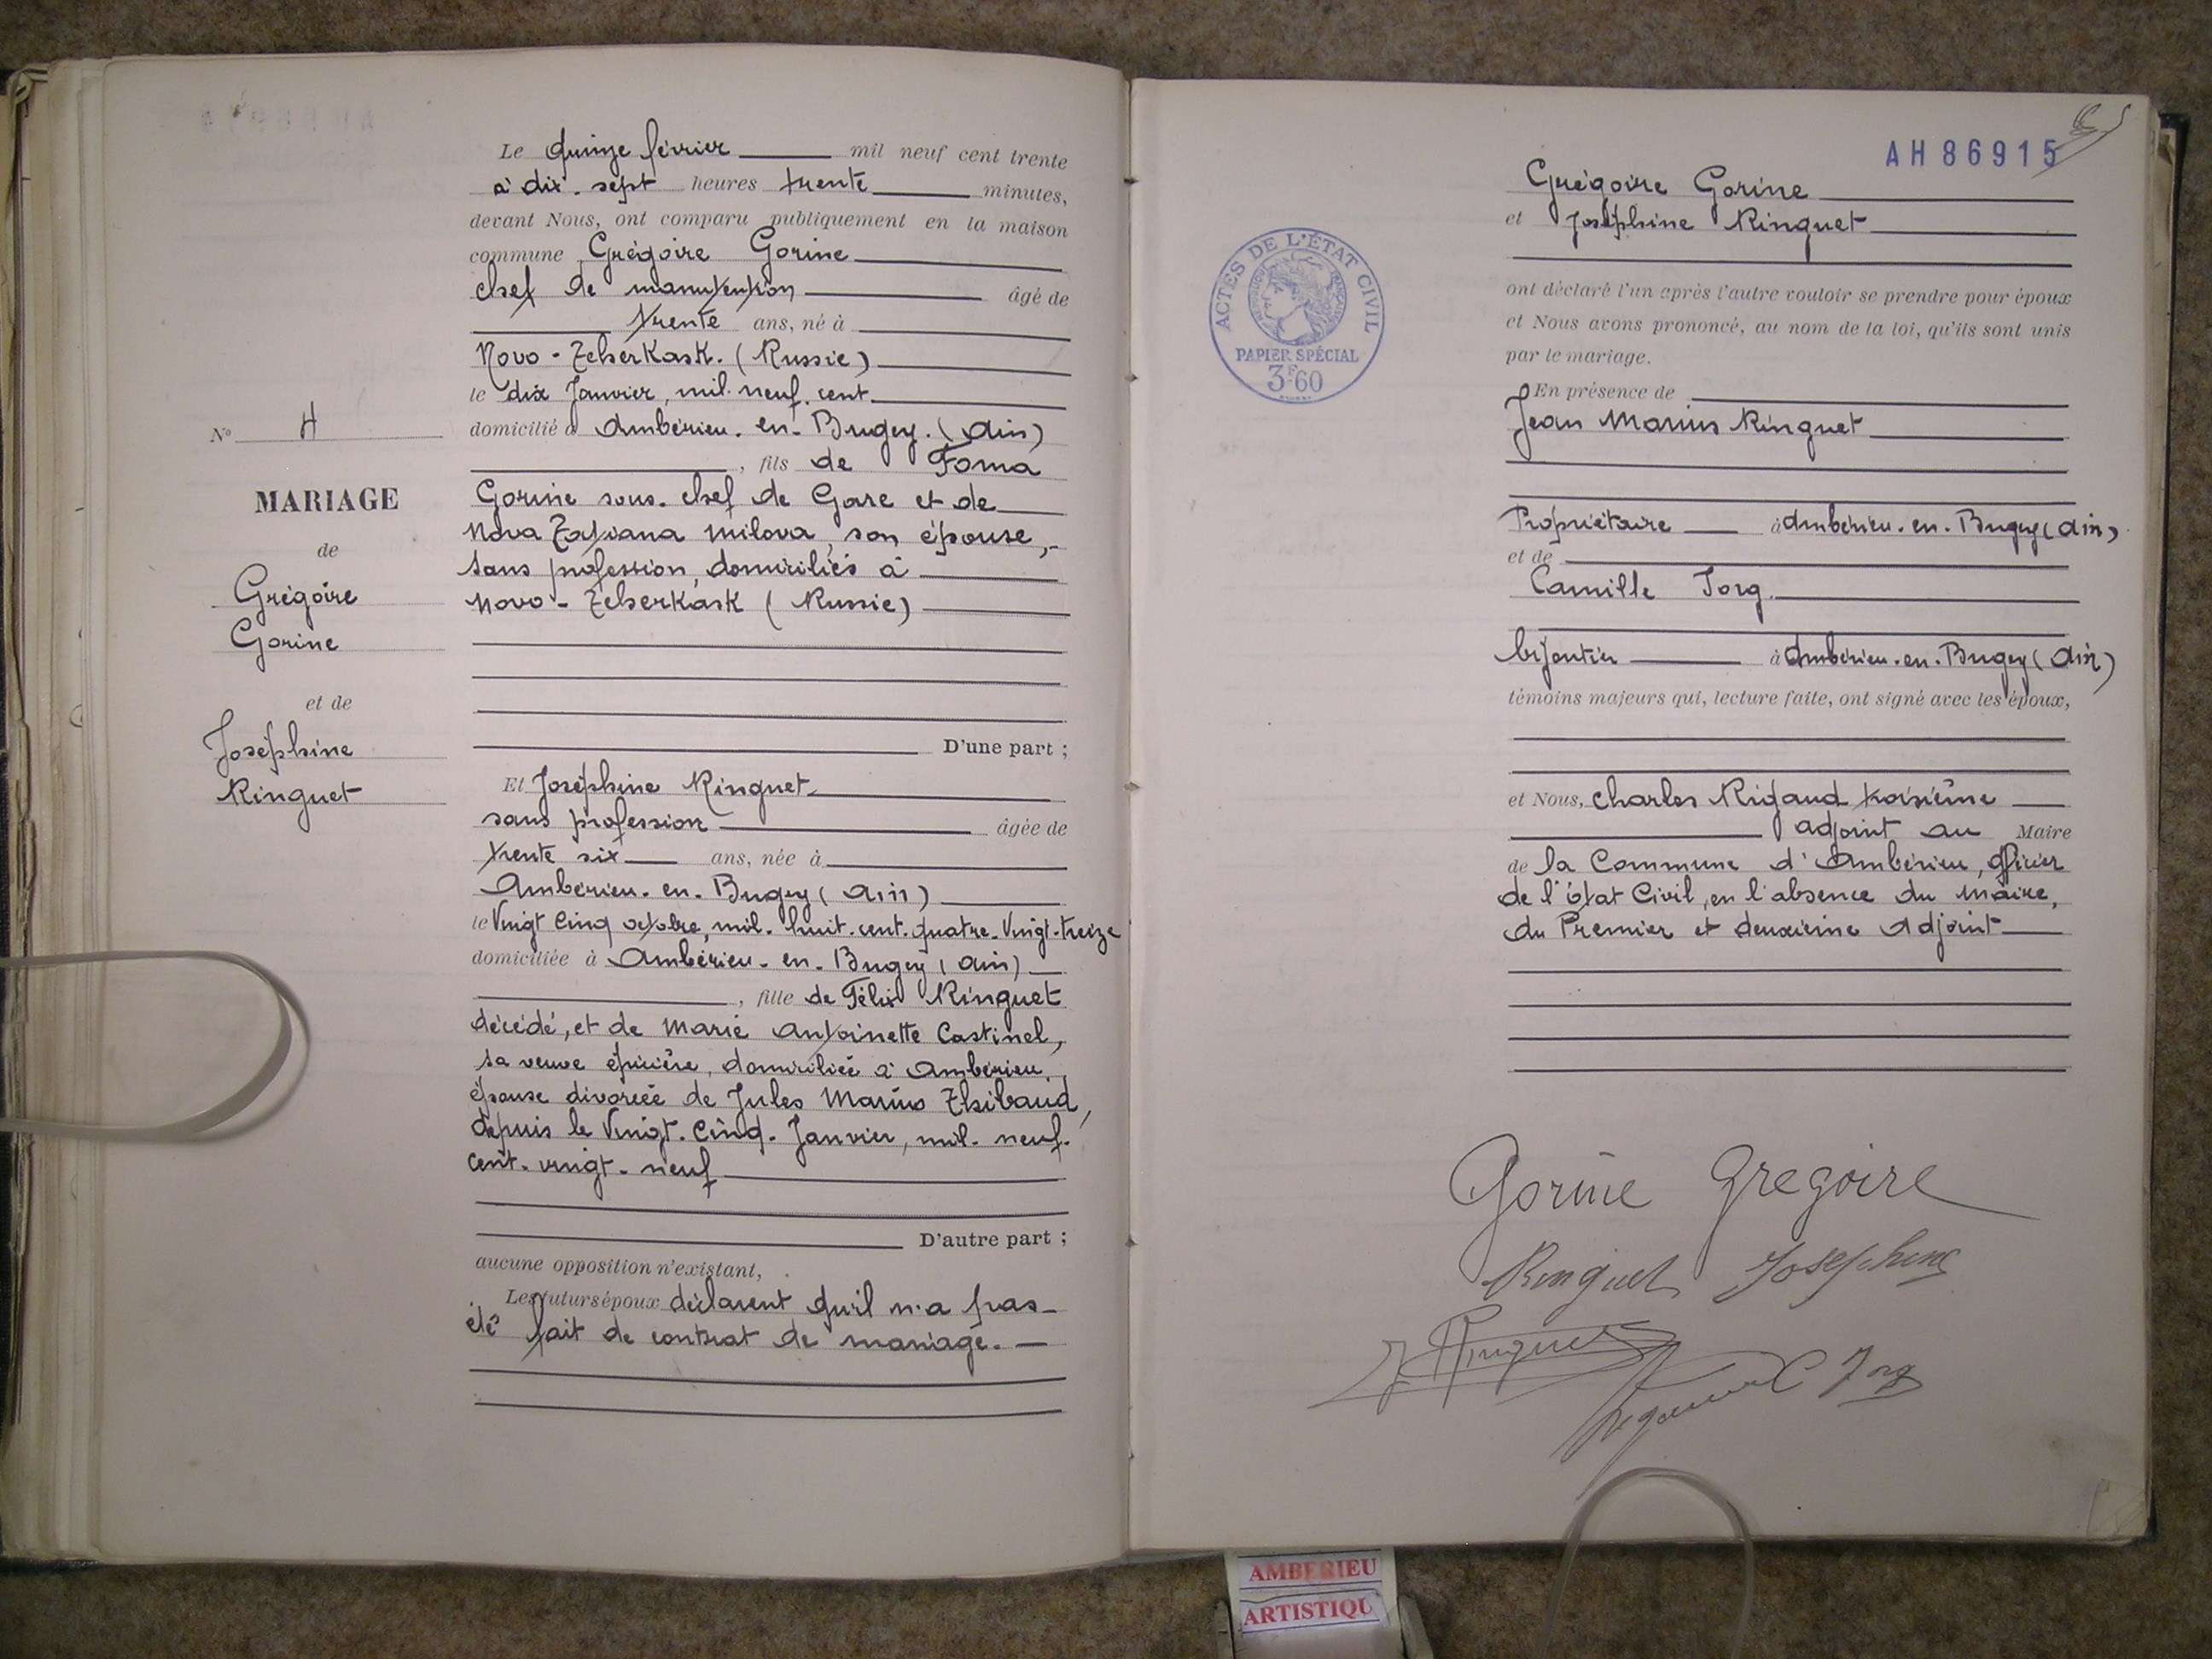 Le quinze février mil neuf cent trente
à dix. sept heures trente minutes,
devant Nous, ont comparu publiquement en la maison
commune Grégoire Gorine
chef de manutention âgé de
trente ans, né à
Novo-Zcherkask. (Russie)
le dix Janvier, mil. neuf. cent
domicilié à Ambérieu. en. Bugey. (Ain)
, fils de Foma
Gorine sous. chef de Gare et de
Nova Tatiana Milova, son épouse,
sans profession, domiciliés à
Novo-Zcherkask (Russie)
D'une part ;
Et Joséphine Ringuet
sans profession âgée de
trente six ans, née à
Ambérieu. en. Bugey (Ain)
le Vingt Cinq octobre, mil. huit. cent. quatre. Vingt. treize
domiciliée à Ambérieu. en. Bugey (Ain)
, fille de Félix Ringuet
décédé, et de Marie Antoinette Castinel,
sa veuve épicière, domiciliée à Ambérieu,
épouse divorcée de Jules Marius Thibaud,
depuis le Vingt. Cinq. Janvier, mil. neuf.
cent. vingt. neuf
D'autre part ;
aucune opposition n'existant,
Les futurs époux déclarent qu'il n'a pas
été fait de contrat de mariage.
N° 4
MARIAGE
de
Grégoire
Gorine
et de
Joséphine
Ringuet
AH 86915
Grégoire Gorine
et Joséphine Ringuet
ont déclaré l'un après l'autre vouloir se prendre pour époux
et Nous avons prononcé, au nom de la loi, qu'ils sont unis
par le mariage.
En présence de
Jean Marius Ringuet
Propriétaire à Ambérieu. en. Bugey (Ain)
et de
Camille Jorg
bijoutier à Ambérieu. en. Bugey (Ain)
témoins majeurs qui, lecture faite, ont signé avec les époux,
et Nous, Charles Rigaud troisième
adjoint au Maire
de la Commune d'Ambérieu, officier
de l'état Civil, en l'absence du Maire,
du Premier et deuxième Adjoint
ACTES DE L'ÉTAT CIVIL
PAPIER SPÉCIAL
3F60
Gorine Gregoire
Ringuet Josephine
J Ringuet
C Jorg
AMBERIEU
ARTISTIQU